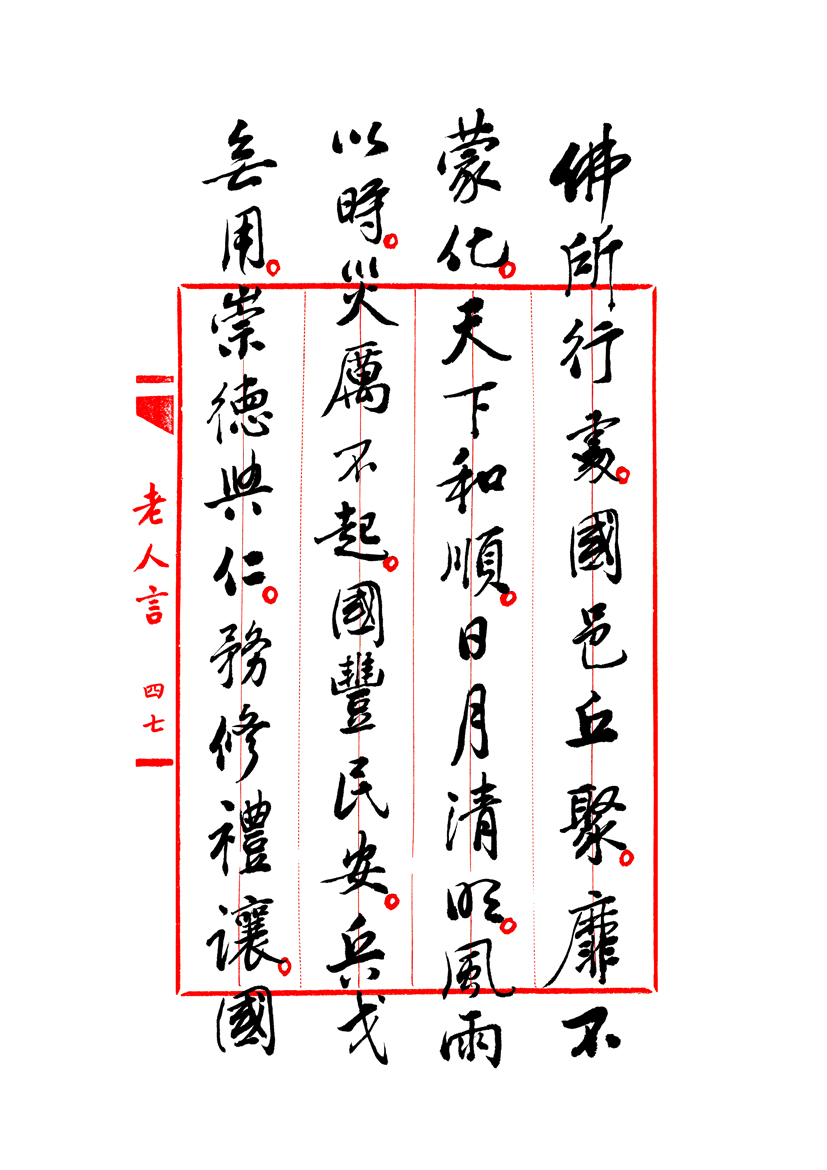 佛所行處。國邑丘聚。靡不
蒙化。天下和順。日月清明。風雨
以時。災厲不起。國豐民安。兵戈
無用。崇德興仁。務修禮讓。國
老人言 四七